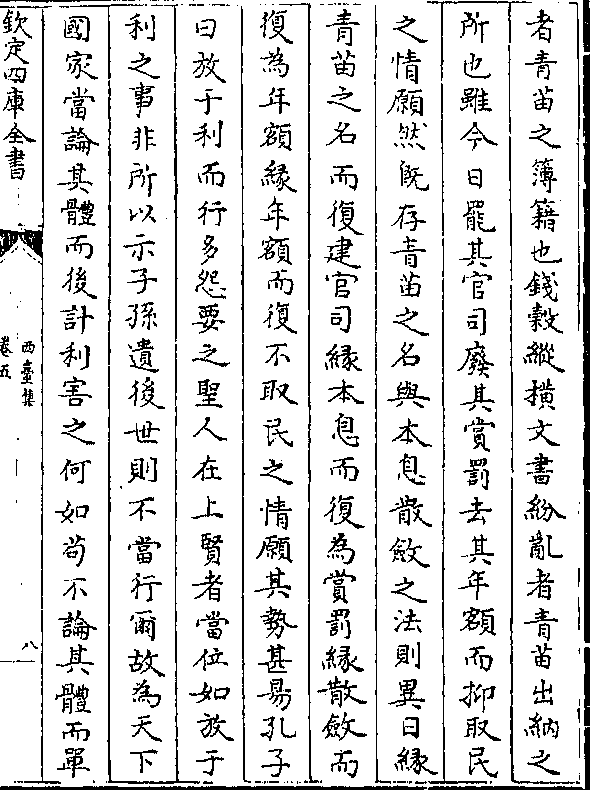 者青苗之簿籍也錢穀縱橫文書紛亂者青苗出納之
所也雖今日罷其官司廢其賞罰去其年額而抑取民
之情願然既存青苗之名與本息散斂之法則異日緣
青苗之名而復建官司緣本息而復為賞罰緣散斂而
復為年額緣年額而復不取民之情願其勢甚易孔子
曰放于利而行多怨要之聖人在上賢者當位如放于
利之事非所以示子孫遺後世則不當行爾故為天下
國家當論其體而後計利害之何如苟不論其體而單
欽定四庫全書
西臺集
卷五
八